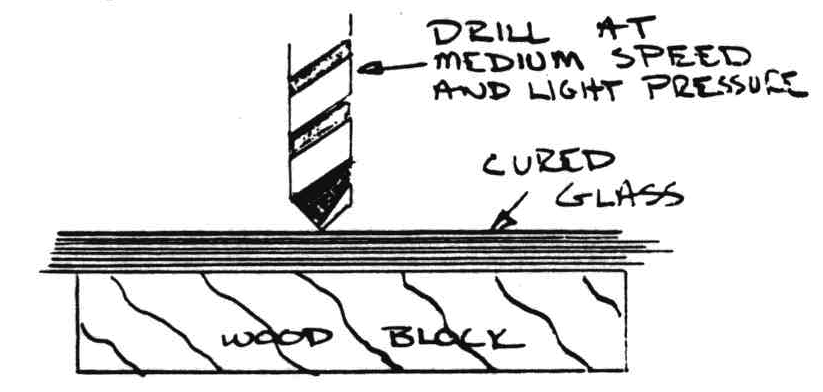 DRILL AT
MEDIUM SPEED
AND LIGHT PRESSURE
CURED
GLASS
WOOD BLOCK